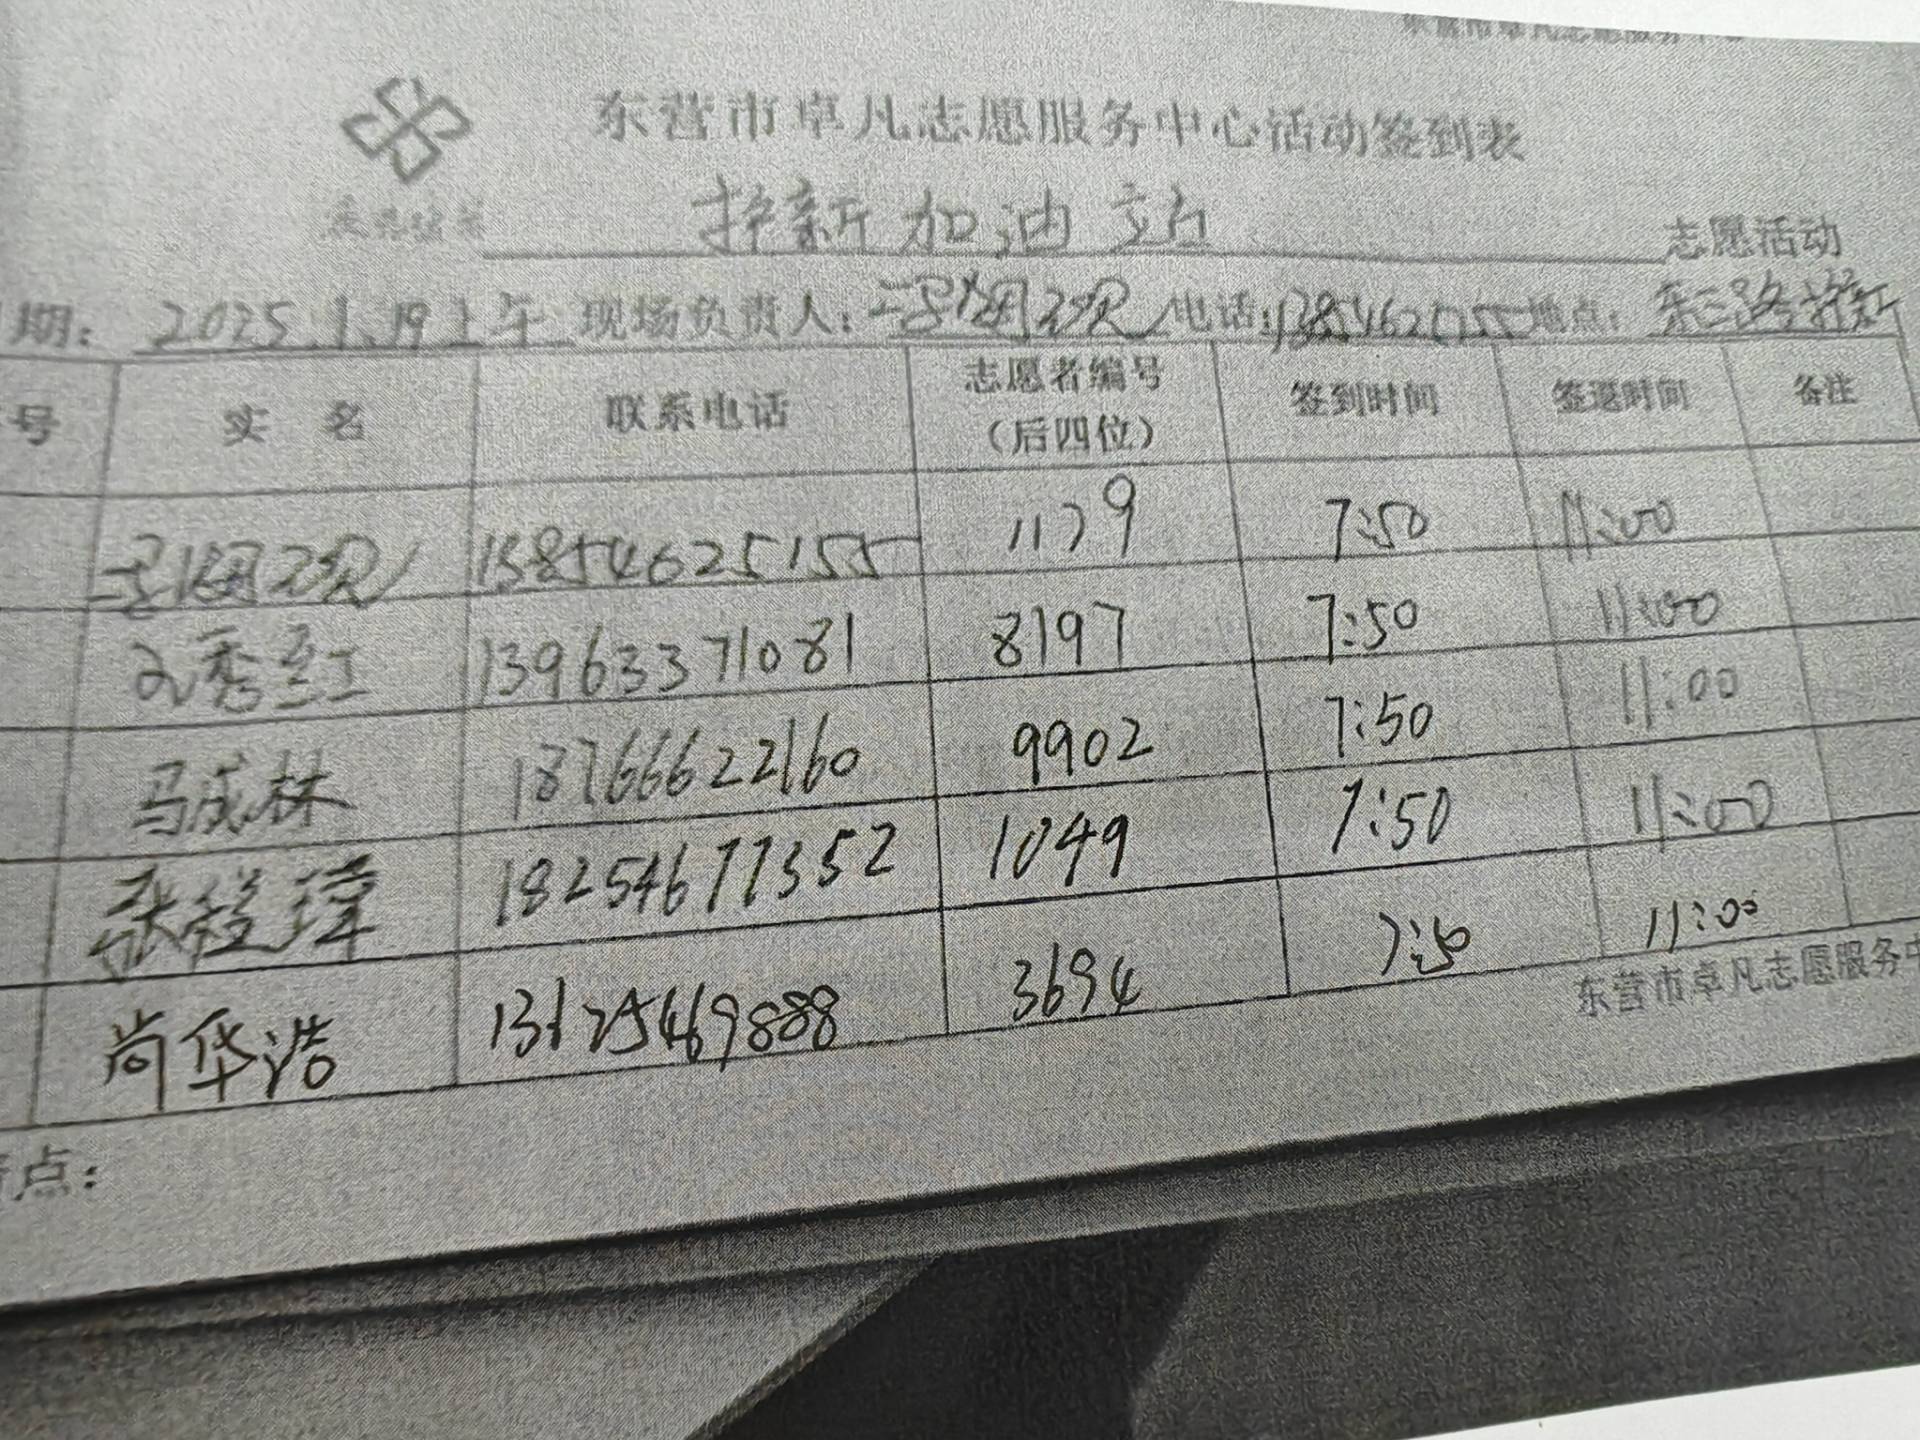 东营市卓凡志愿服务中心活动签到表
加油站 志愿活动
期: 2025.1.19上午 现场负责人: 电话:13854625155 地点: 东三路
号 实 名 联系电话 志愿者编号(后四位) 签到时间 签退时间 备注
13854625155 1179 7:50 11:00
秀红 13963371081 8197 7:50 11:00
马成林 18766622160 9902 7:50 11:00
张 18254677352 1049 7:50 11:00
尚华浩 3694 7:50 11:00
东营市卓凡志愿服务中
点: